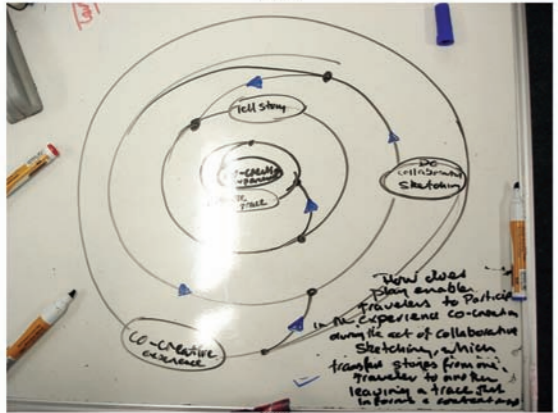 Tell story
Do
collaborative
sketching
trace
co-creative
experience
How does
play enable
travelers to Particip
in the experience co-creation
during the act of collaborative
sketching, which
transfer stories from one
traveler to another
leaving a trace that
informs a